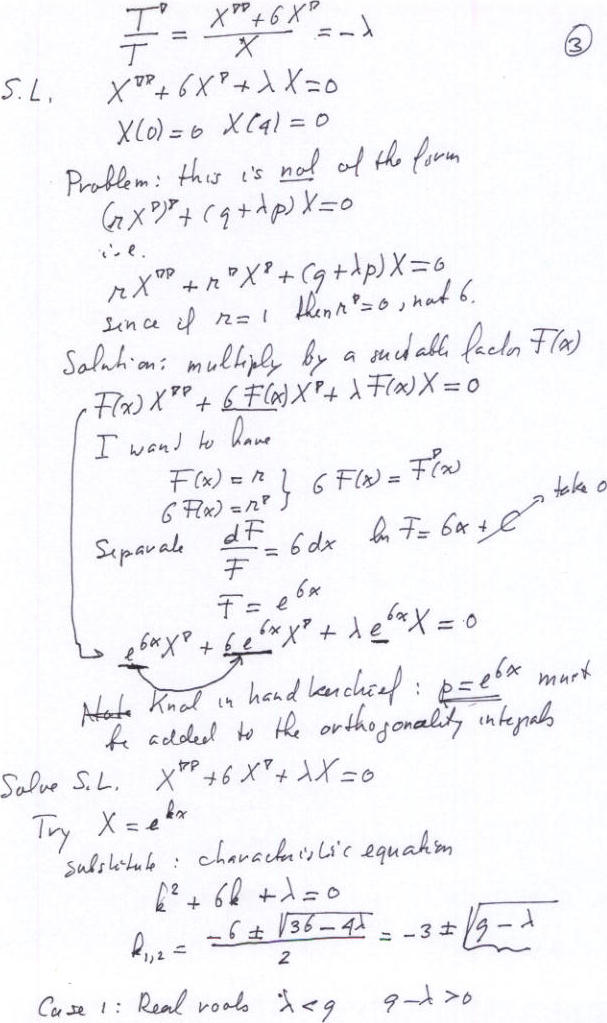 T'/T = X''+6X'/X = -λ
③
S.L. X''+6X'+λX=0
X(0)=0 X(9)=0
Problem: this is not of the form
(rX')'+(q+λp)X=0
i.e.
rX''+r'X'+(q+λp)X=0
since if r=1 then r'=0, not 6.
Solution: multiply by a suitable factor F(x)
F(x)X''+6F(x)X'+λF(x)X=0
I want to have
F(x)=r
6F(x)=r' } 6F(x)=F'(x)
Separate dF/F = 6dx ln F=6x+C take 0
F=e^6x
e^6x X'+6e^6x X'+λe^6x X=0
Note Knot in handkerchief: p=e^6x must
be added to the orthogonality integrals
Solve S.L. X''+6X'+λX=0
Try X=e^kx
substitute: characteristic equation
k²+6k+λ=0
k₁,₂ = -6±√36-4λ/2 = -3±√9-λ
Case 1: Real roots λ<9 9-λ>0